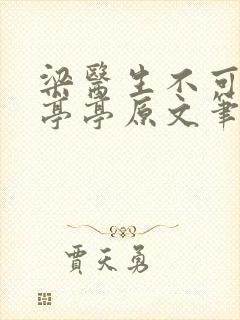 梁醫生不可
亭亭原文筆
賈天勇